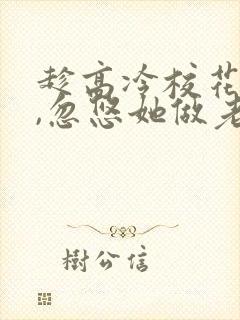 趁高冷校花
,忽悠她做老
樹公信